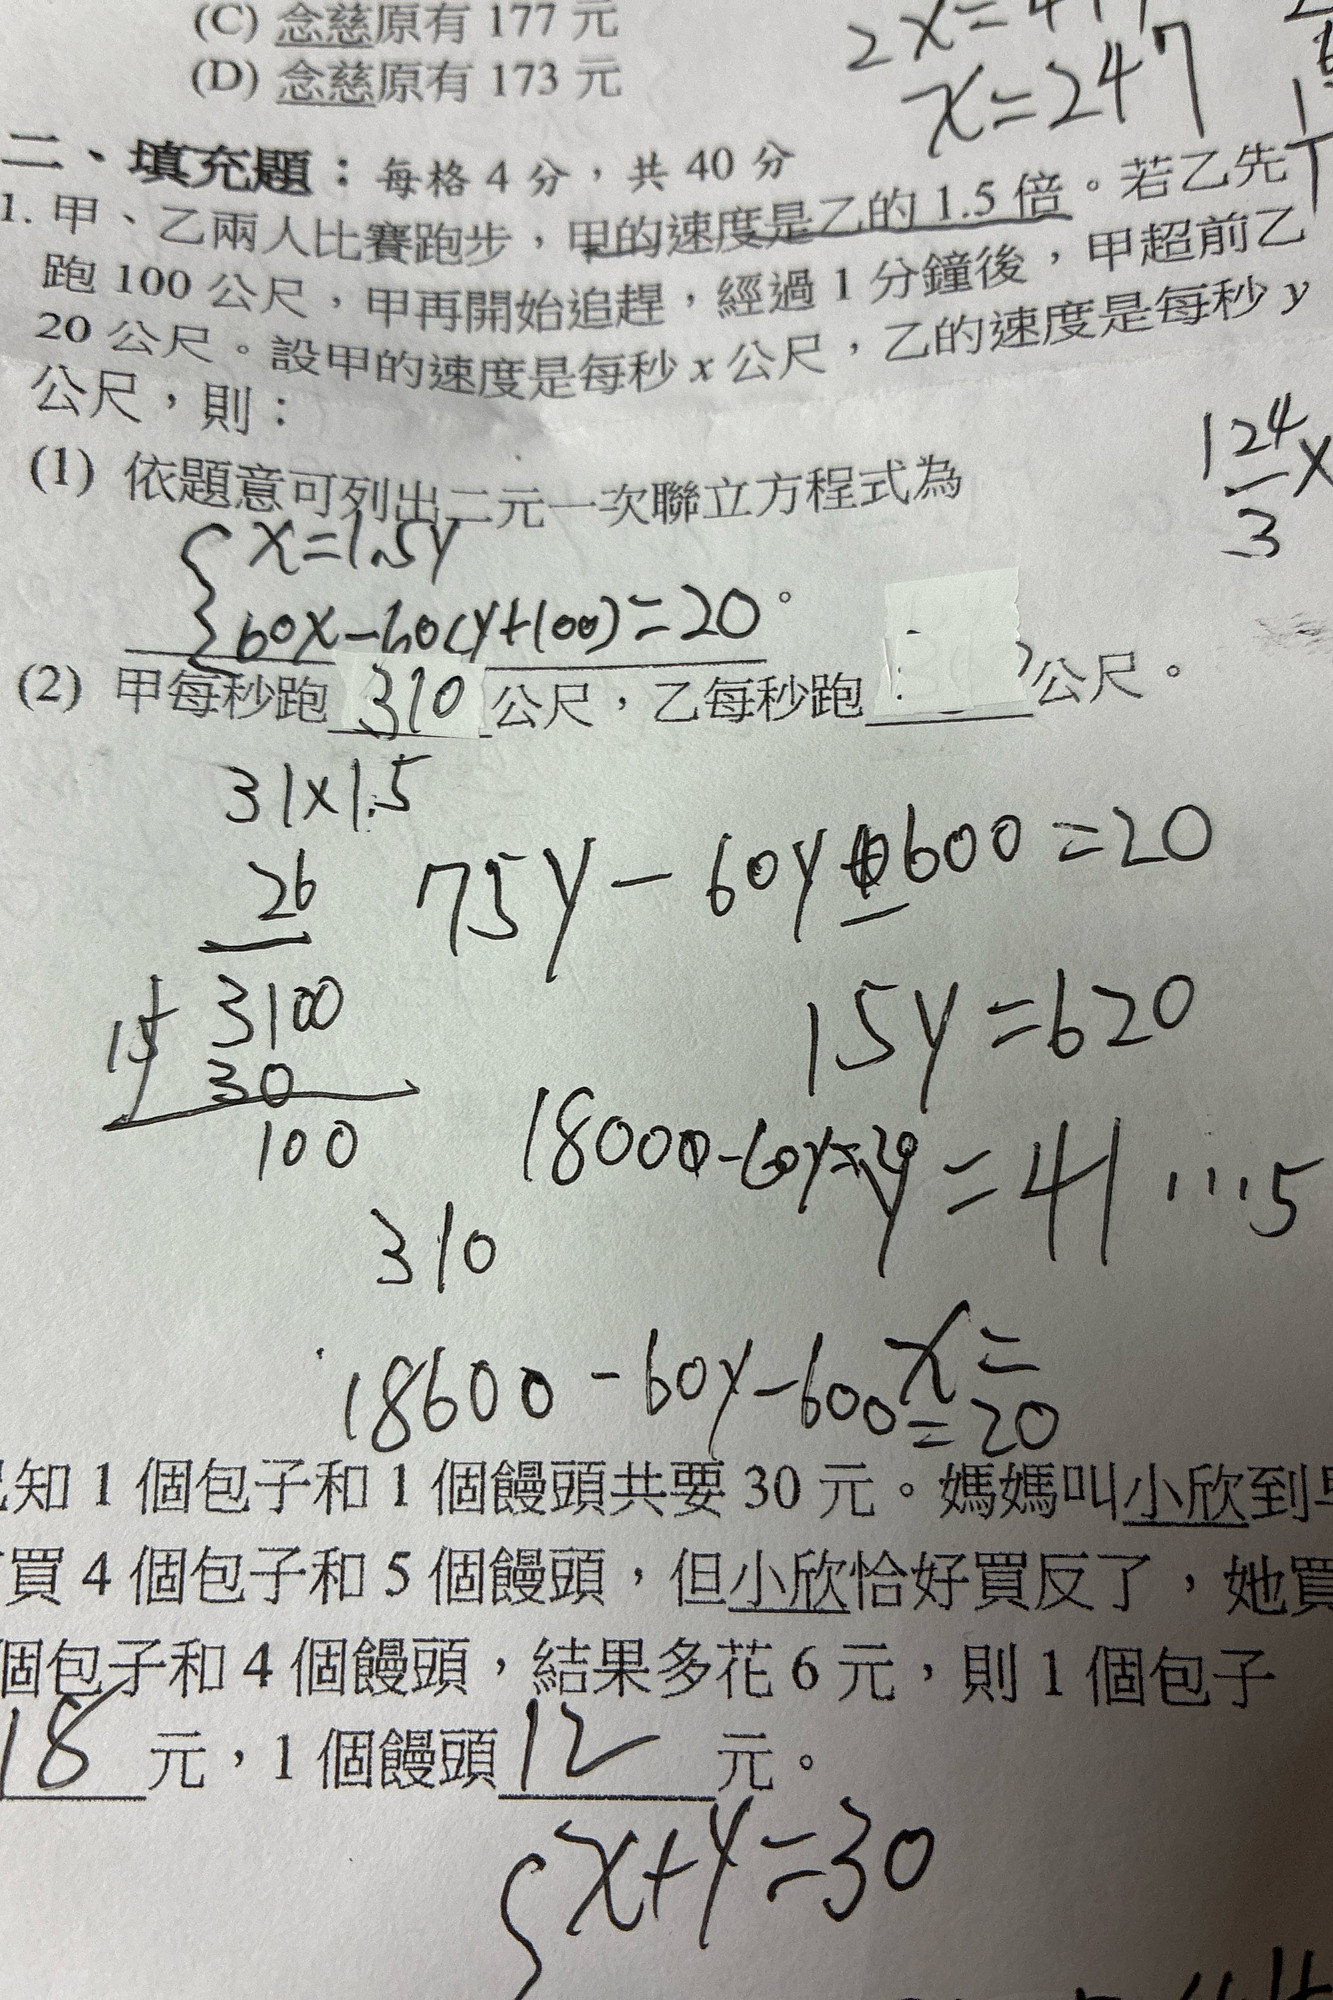 (C) 念慈原有 177 元
(D) 念慈原有 173 元
x=247
二、填充題：每格 4 分，共 40 分
1. 甲、乙兩人比賽跑步，甲的速度是乙的 1.5 倍。若乙先
跑 100 公尺，甲再開始追趕，經過 1 分鐘後，甲超前乙
20 公尺。設甲的速度是每秒 x 公尺，乙的速度是每秒 y
公尺，則：
(1) 依題意可列出二元一次聯立方程式為
x=1.5y
60x-60(y+100)=20。
124
3
x
(2) 甲每秒跑 310 公尺，乙每秒跑 公尺。
31x1.5
26
75y-60y 600=20
15 3100
30
100
15y=620
18000-60y=20
y=41...5
310
x=
18600-60y-600=20
知 1 個包子和 1 個饅頭共要 30 元。媽媽叫小欣到
買 4 個包子和 5 個饅頭，但小欣恰好買反了，她買
個包子和 4 個饅頭，結果多花 6 元，則 1 個包子
18 元，1 個饅頭 12 元。
x+y=30